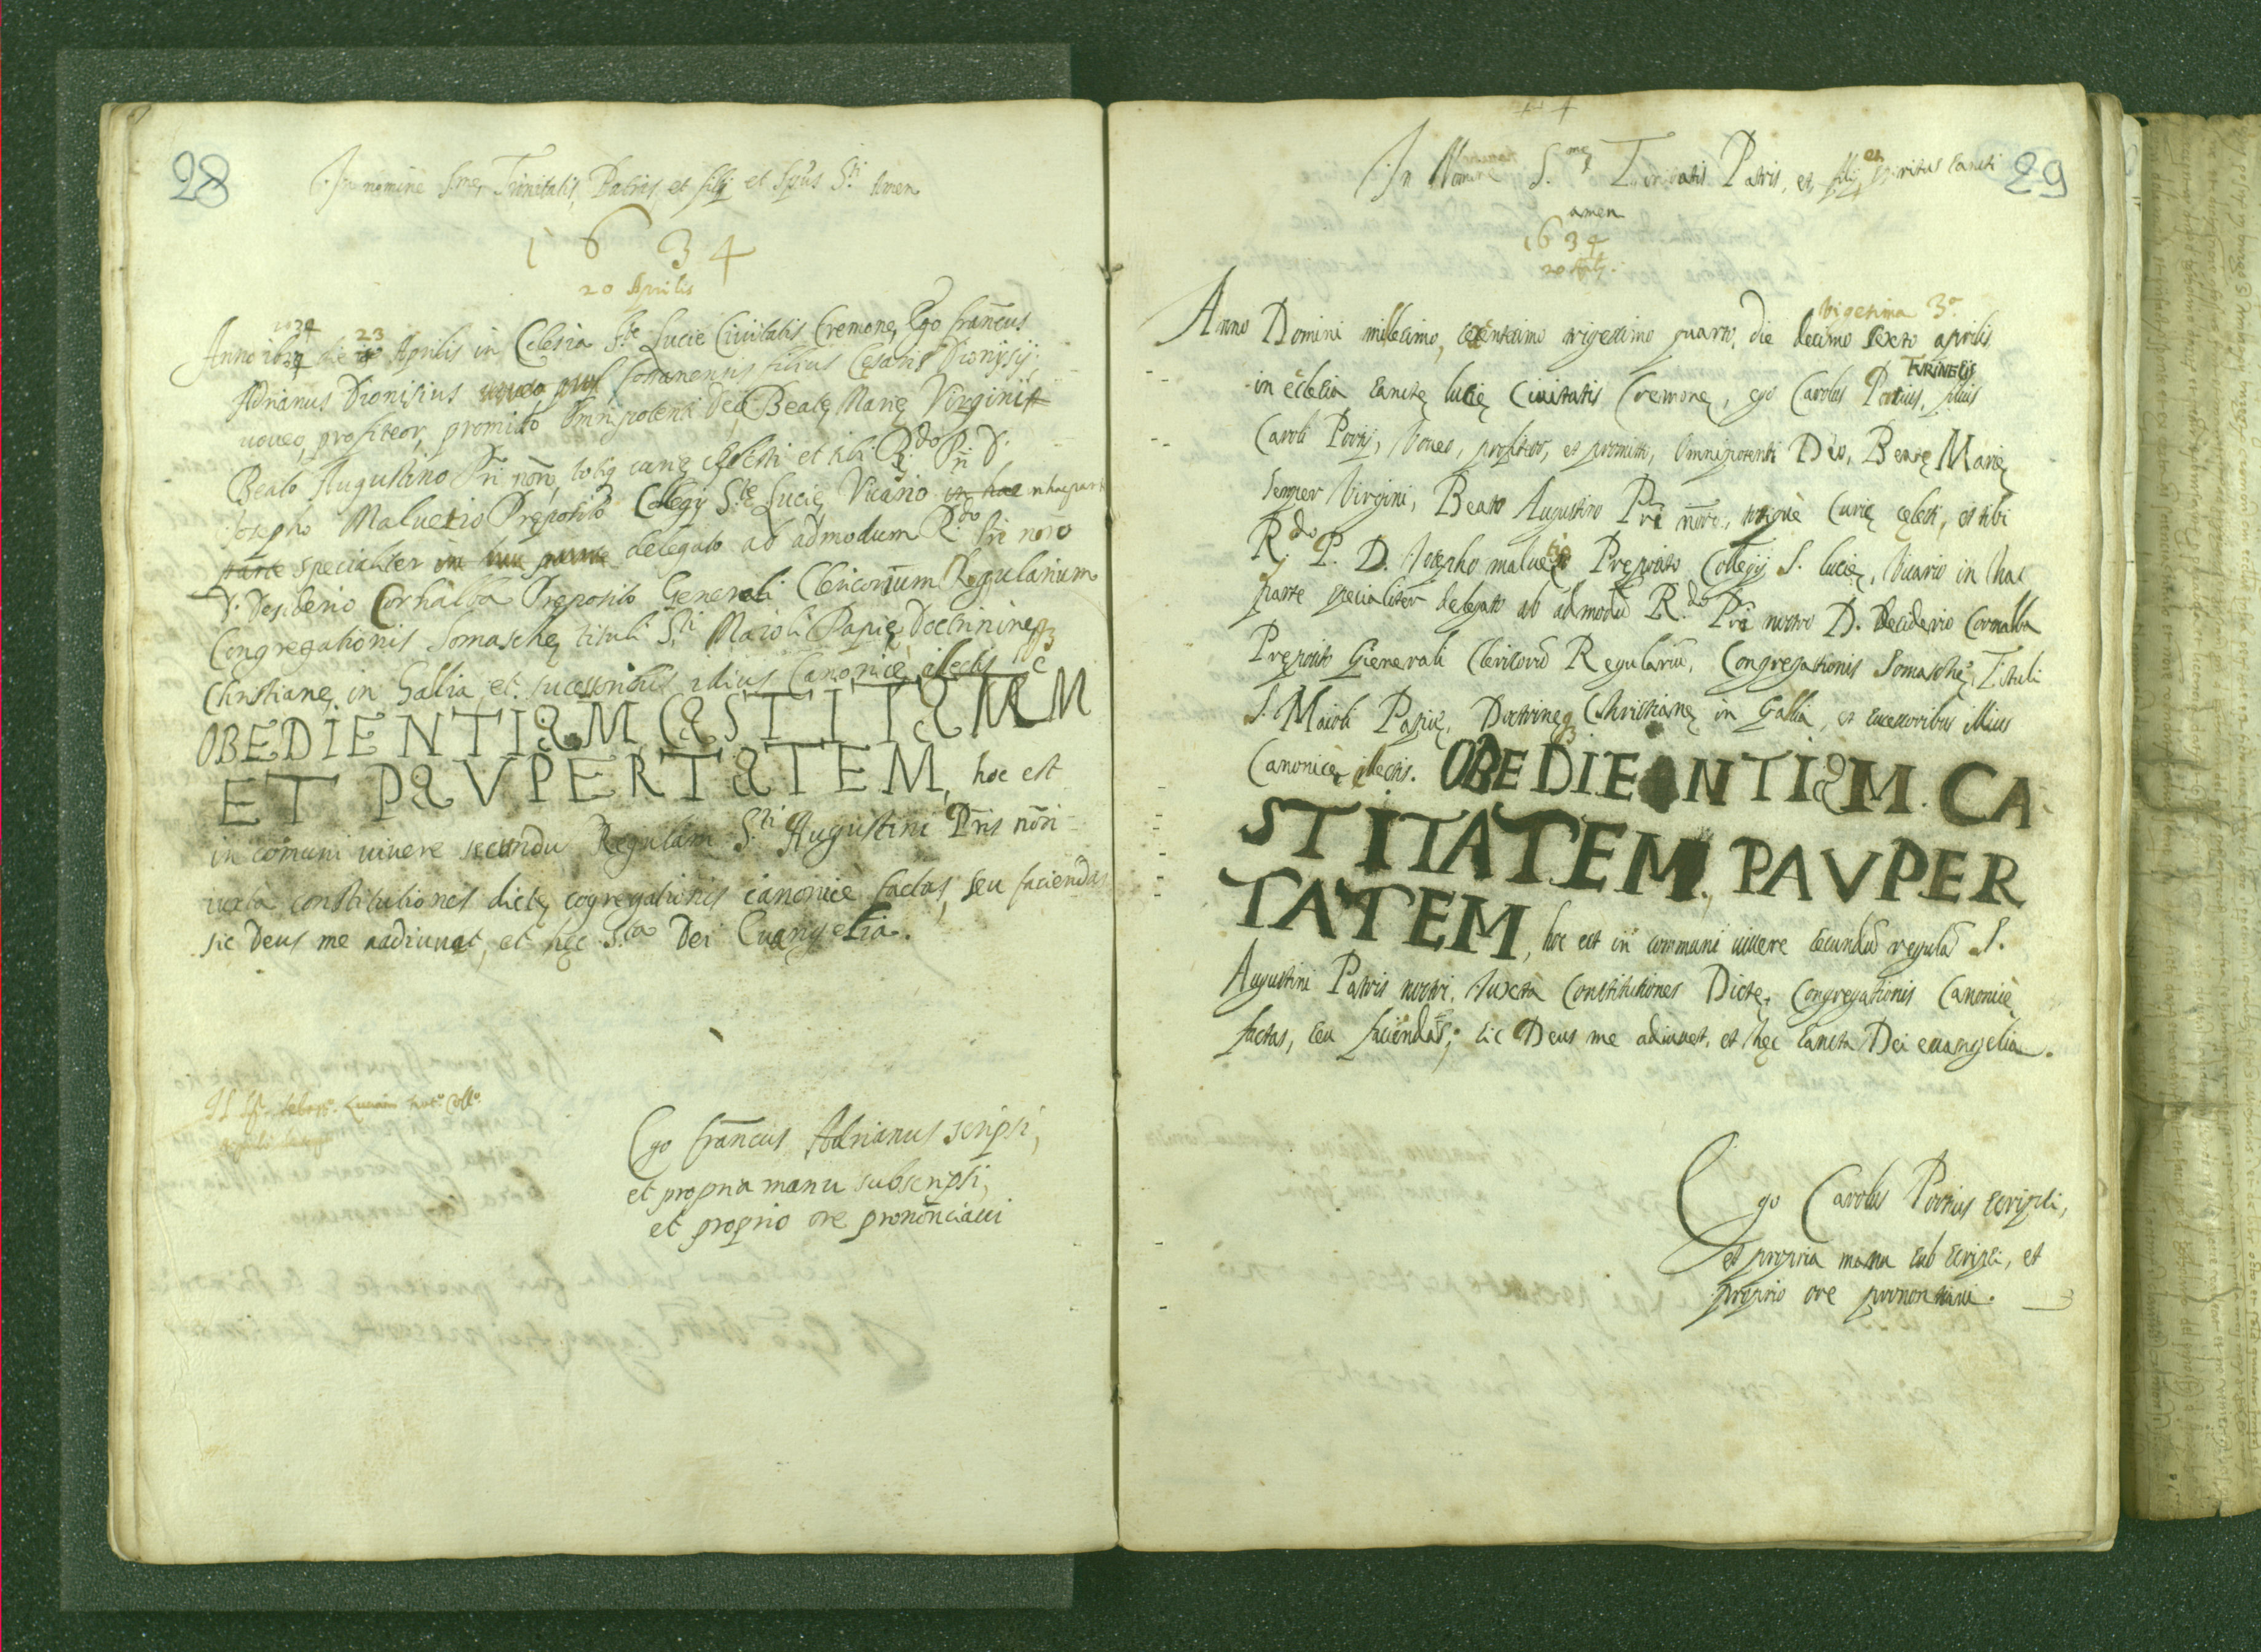 28
In nomine S.me Trinitatis, Patris et filij et Spũs S.ti Amen
1634
20 Aprilis
Anno 1634 die 23 Aprilis in Eclesia S.te Lucie Civitatis Cremonę, Ego franc̃us
Adrianus Dionisius filius Cesaris Dionisij
uoveo, profiteor, promitto Omnipotenti Deo Beatę Marię Virgini
Beato Augustino Pr̃i nõro, totiq curię cęlesti et tibi R.do P.ri D.
Josepho Malvetio Pręposito Collegij S.te Lucię, Vicario in hac nhac part
parte specialiter delegato ab admodum R.do Pri nõro
D. Desiderio Cornalba Pręposito Generali Clericorum Regularium
Congregationis Somaschę tituli S.ti Maioli Papię, Doctrinine q3
Christianę in Gallia et sucessoribus illius Canonicè electis
OBEDIENTIAM CASTITATEM
ET PAVPERTATEM, hoc est
in cõmuni uiuere secundũ Regulam S.ti Augustini Pr̃is nõri
iuxta constitutiones dictę cõgregationis canonicè factas, seu faciendas
sic Deus me adiuuat, et hęc S.ta Dei Euangelia.
Ego franc̃us Adrianus scripsi,
et propria manu subscripsi,
et proprio ore pronõnciaui
29
In Nomine S.me Trinitatis Patris, et filij, et spiritus sancti
amen
1634
20 Aprilis.
vigesima 3.a
Anno Domini millesimo, sexentesimo trigesimo quarto, die decimo sexto aprilis
TURINENSIS
in ecclesia sanctę lucię Ciuitatis Cremonę, ego Carolus Portius, filius
Caroli Portij, Voueo, profiteor, et promitto, Omnipotenti Deo, Beatę Marię
semper Virgini, Beato Augustino Pr̃i nõro, totiquè Curię cęlesti, et tibi
R.do P. D. Josepho maluetio Pręposito Collegij S. lucię, Vicario in hac
parte specialiter delegato ab admodũ R.do Pr̃i nostro D. Desiderio Cornalba
Pręposito Generali Clericorũ Regulariũ, Congregationis Somaschę, Tituli
S. Maioli Papię, Doctrinęq3 Christianę in Gallia, et successoribus illius
Canonicè electis. OBEDIENTIAM. CA
STITATEM. PAVPER
TATEM, hoc est in communi uiuere secundũ regulã S.
Augustini Patris nostri, Juxtà Constitutiones Dictę Congregationis Canonicè
factas, seu faciendas; sic Deus me adiuuet, et hęc sancta Dei euangelia.
Ego Carolus Portius scripsi,
et propria manu sub scripsi, et
proprio ore prononciaui.